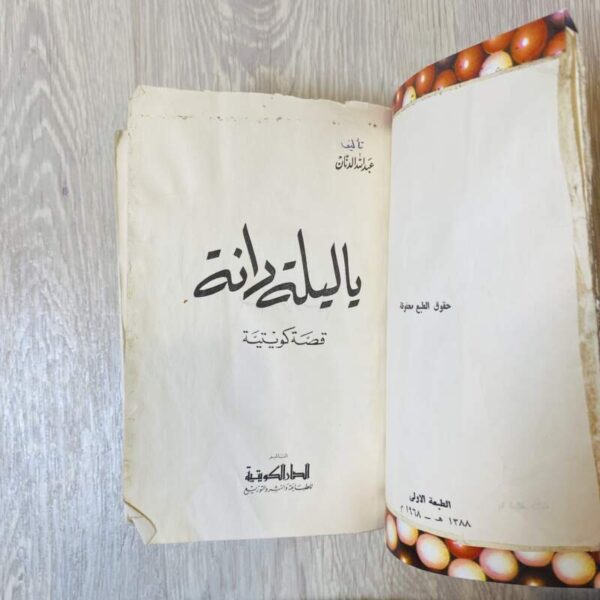 حقوق الطبع محفوظة
الطبعة الاولى
١٣٨٨ هـ - ١٩٦٨ م
تأليف
عبدالله الدنان
يا ليلة دانة
قصة كويتية
الناشر
الدار الكويتية
للطباعة والنشر والتوزيع